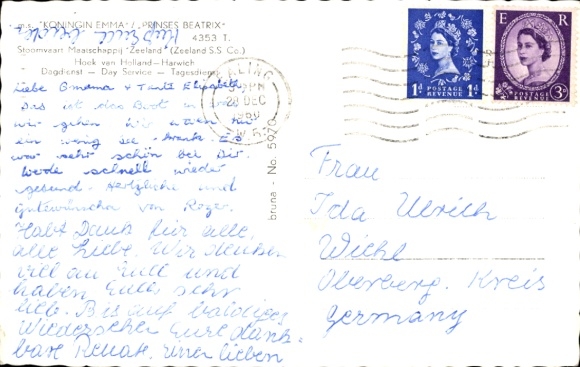 m.s. "KONINGIN EMMA" / "PRINSES BEATRIX"
4353 T.
Stoomvaart Maatschappij "Zeeland" (Zeeland S.S. Co.)
Hoek van Holland – Harwich
Dagdienst – Day Service – Tagesdienst
Liebe Omama & Tante Elisabeth
Das ist das Boot
wir gehen
ein wenig krank. Es
war sehr schön bei Dir.
Werde schnell wieder
gesund. Herzliche und
von Roger.
Habt Dank für alle,
alle Liebe. Wir denken
viel an und
haben Euch sehr
lieb. Bis auf baldiges
Wiedersehen Eure dank-
bare Renate, lieben
bruna - No. 5970
EALING
PM
DEC
1960
W.5
1d POSTAGE REVENUE 1d
E R
POSTAGE REVENUE 3d
Frau
Ida Ulrich
Wiehl
Oberberg. Kreis
Germany